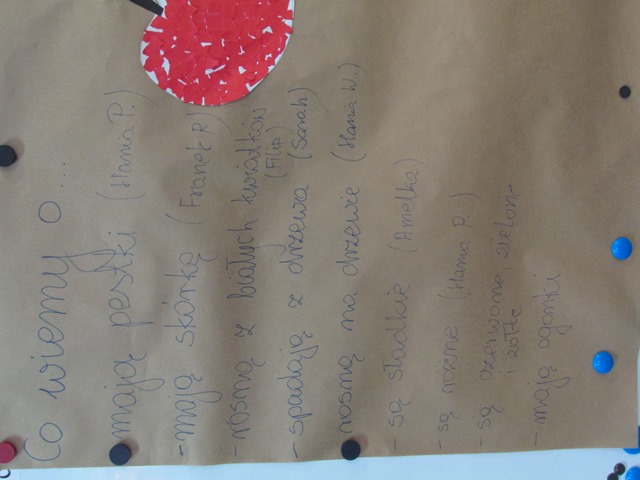 Co wiemy o...
mają pestki (Hania P.)
- mają skórkę (Franek R)
- rosną z białych kwiatków (Filip)
- spadają z drzewa (Sarah)
rosną na drzewie (Hania W.)
- są słodkie (Amelka)
- są różne (Hania P.)
- są czerwone, zielone
i żółte
- mają ogonki